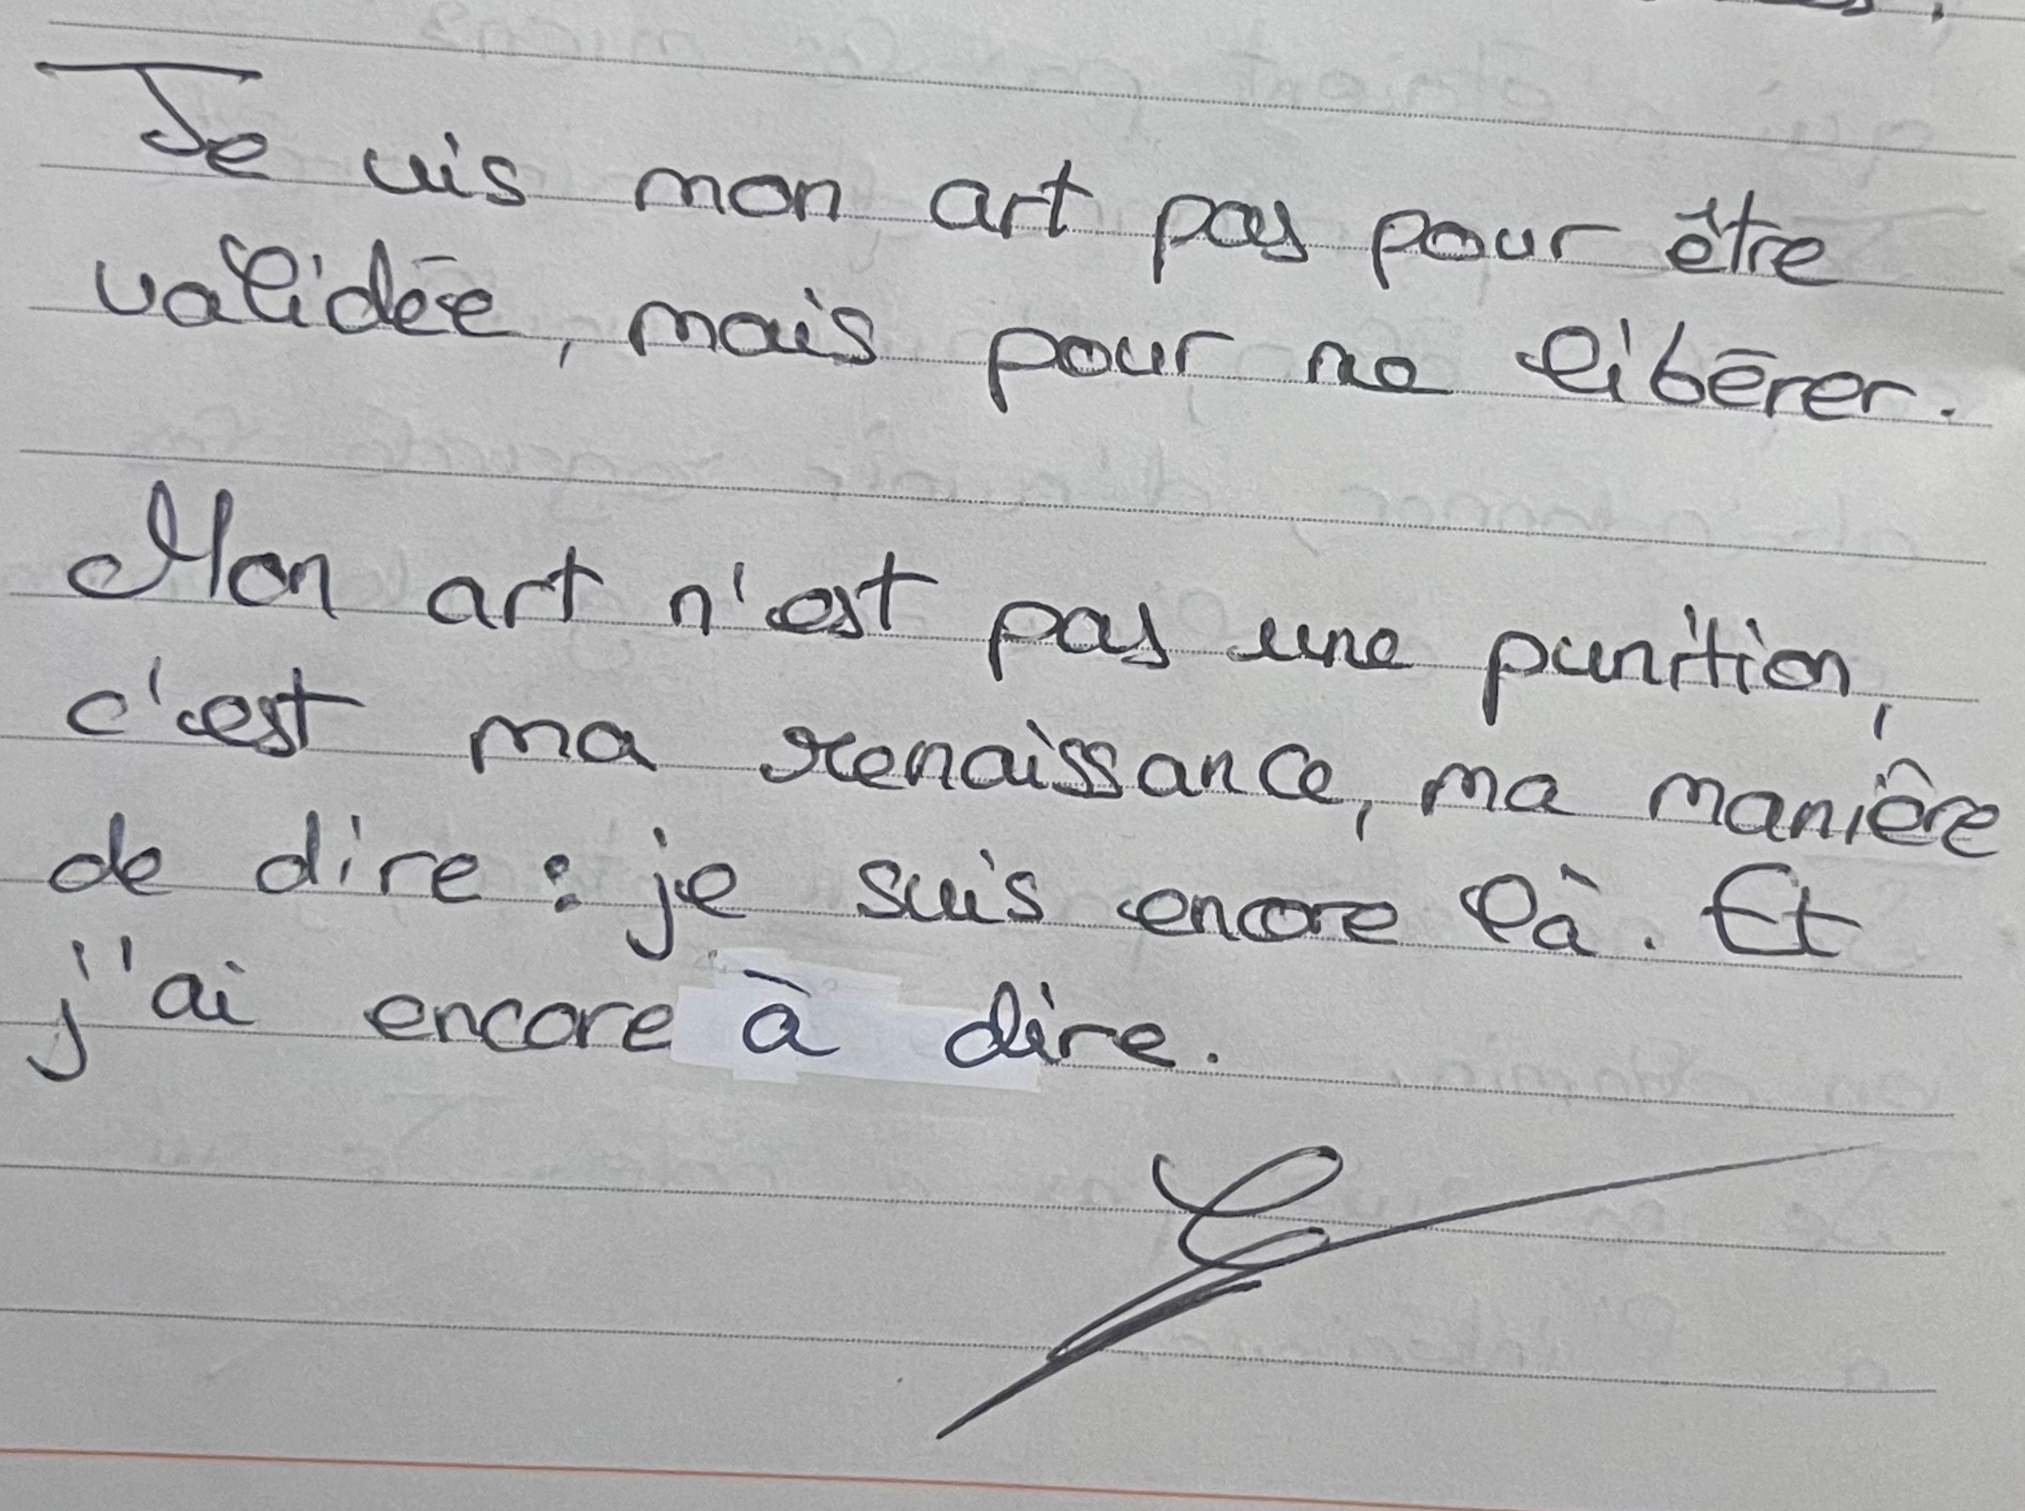 Je vis mon art pas pour être
validée, mais pour me libérer.
Mon art n'est pas une punition,
c'est ma renaissance, ma manière
de dire : je suis encore là. Et
j'ai encore à dire.